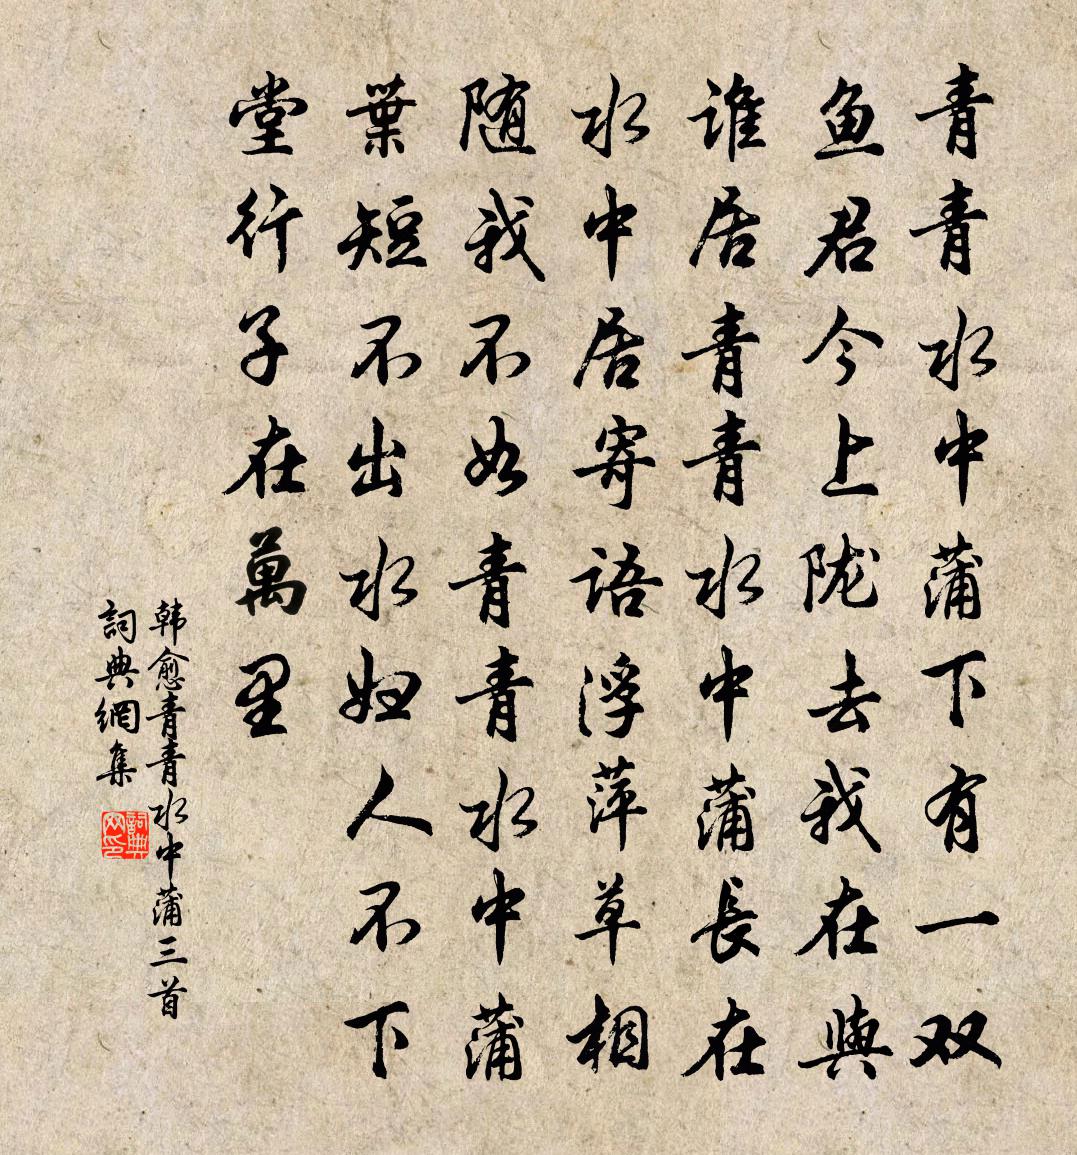 青青水中蒲下有一双
鱼君今上陇去我在與
谁居青青水中蒲長在
水中居寄语浮萍草相
随我不如青青水中蒲
葉短不出水妇人不下
堂行子在萬里
韩愈青青水中蒲三首
詞典網集
詞典
网印